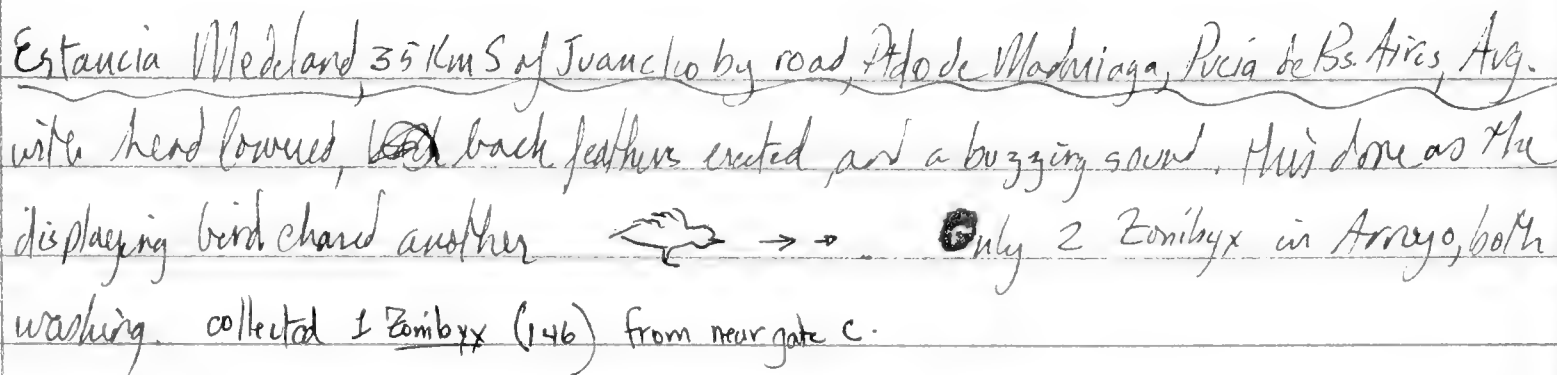 Estancia Medeland, 35 Km S of Juancho by road, Ptdo de Madariaga, Pvcia de Bs. Aires, Arg.
with head lowered, back feathers erected, and a buzzing sound. This done as the
displaying bird chased another → → Only 2 Zonibyx in Arroyo, both
washing. collected 1 Zonibyx (146) from near gate C.